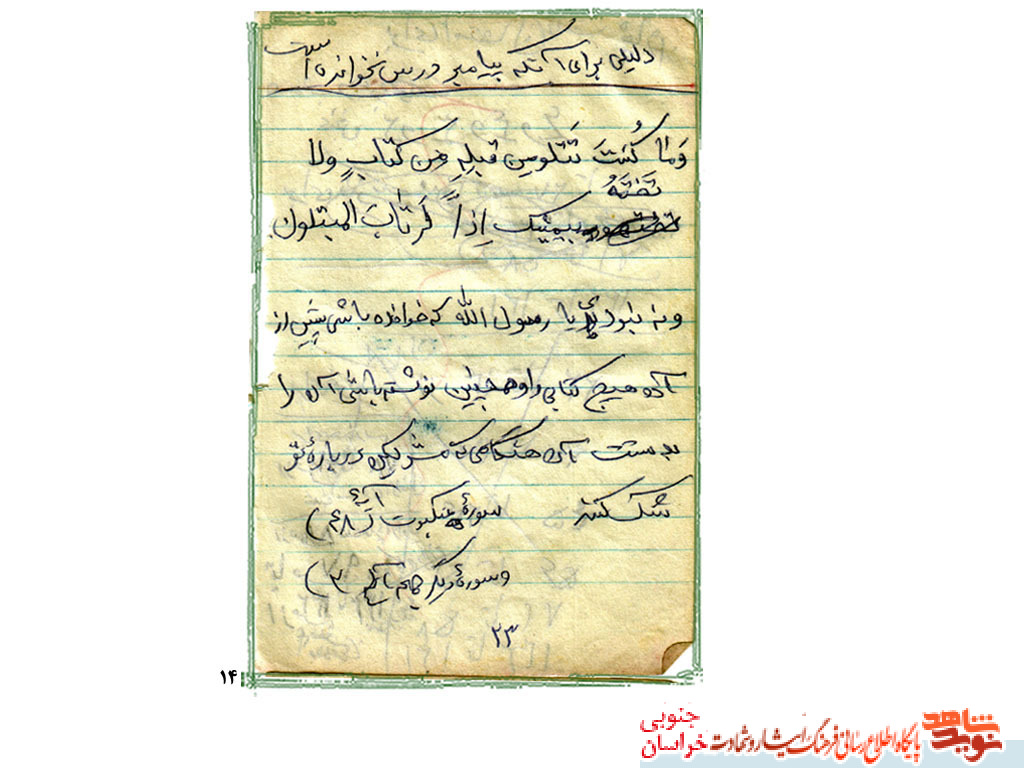 دلیلی برای آنکه پیامبر درس نخوانده است
وَمٰا کُنتَ تَتلومِن قبلِهِ مِن کتٰابٍ ولا
تَختَهُ
بیمینک اِذاً لَرتٰابَ المبتلون
ونه نبود یا رسول اللّه که خوانده باشی پیش از
آن هیچ کتابی را و همچنین نوشته باشی آن را
بدست آن هنگامی که مشرکین درباره‌ٔ تو
شک کنند سورهٔ عنکبوت آیهٔ ۴۸)
و سورهٔ دیگر جمعه آیهٔ ۲)
۲۳
۱۴
نوید شاهد
پایگاه اطلاع رسانی فرهنگ ایثار و شهادت
خراسان جنوبی